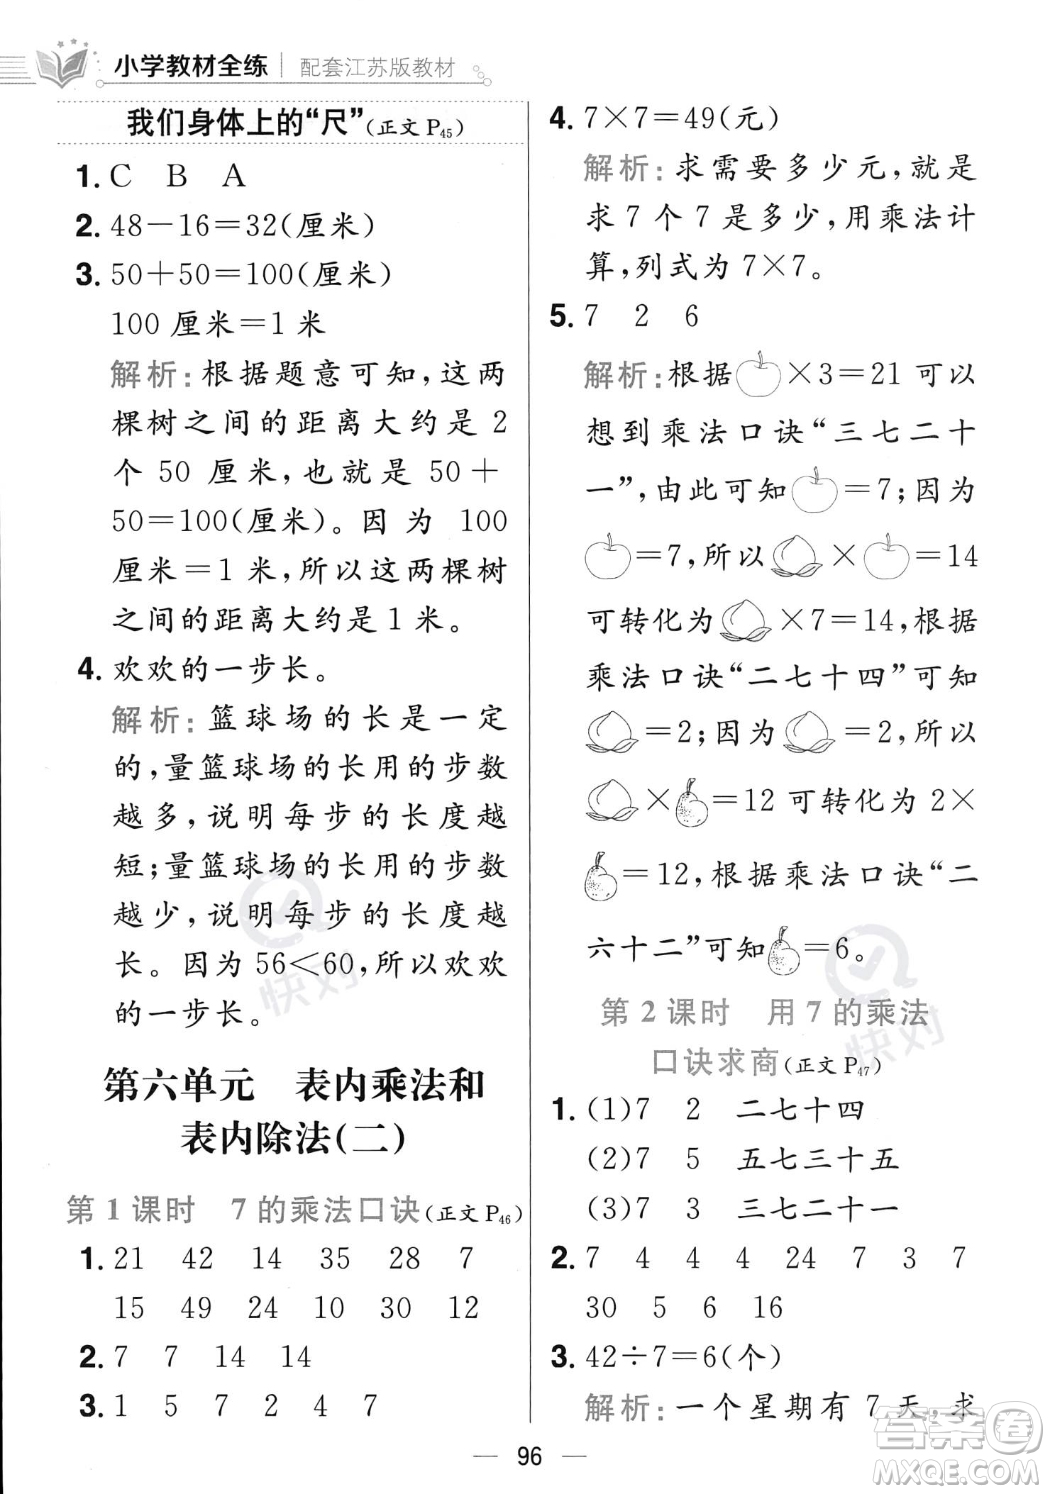 小学教材全练 配套江苏版教材
我们身体上的“尺”(正文 P45)
1. C B A
2. 48－16＝32(厘米)
3. 50＋50＝100(厘米)
100 厘米＝1 米
解析:根据题意可知,这两
棵树之间的距离大约是 2
个 50 厘米,也就是 50＋
50＝100(厘米)。因为 100
厘米＝1 米,所以这两棵树
之间的距离大约是 1 米。
4. 欢欢的一步长。
解析:篮球场的长是一定
的,量篮球场的长用的步数
越多,说明每步的长度越
短;量篮球场的长用的步数
越少,说明每步的长度越
长。因为 56＜60,所以欢欢
的一步长。
第六单元 表内乘法和
表内除法(二)
第 1 课时 7 的乘法口诀(正文 P46)
1. 21 42 14 35 28 7
15 49 24 10 30 12
2. 7 7 14 14
3. 1 5 7 2 4 7
4. 7×7＝49(元)
解析:求需要多少元,就是
求 7 个 7 是多少,用乘法计
算,列式为 7×7。
5. 7 2 6
解析:根据 ×3＝21 可以
想到乘法口诀“三七二十
一”,由此可知 ＝7;因为
＝7,所以 × ＝14
可转化为 ×7＝14,根据
乘法口诀“二七十四”可知
＝2;因为 ＝2,所以
× ＝12 可转化为 2×
＝12,根据乘法口诀“二
六十二”可知 ＝6。
第 2 课时 用 7 的乘法
口诀求商(正文 P47)
1. (1)7 2 二七十四
(2)7 5 五七三十五
(3)7 3 三七二十一
2. 7 4 4 4 24 7 3 7
30 5 6 16
3. 42÷7＝6(个)
解析:一个星期有 7 天,求
96
快对
快对
答案圈
MXQE.COM